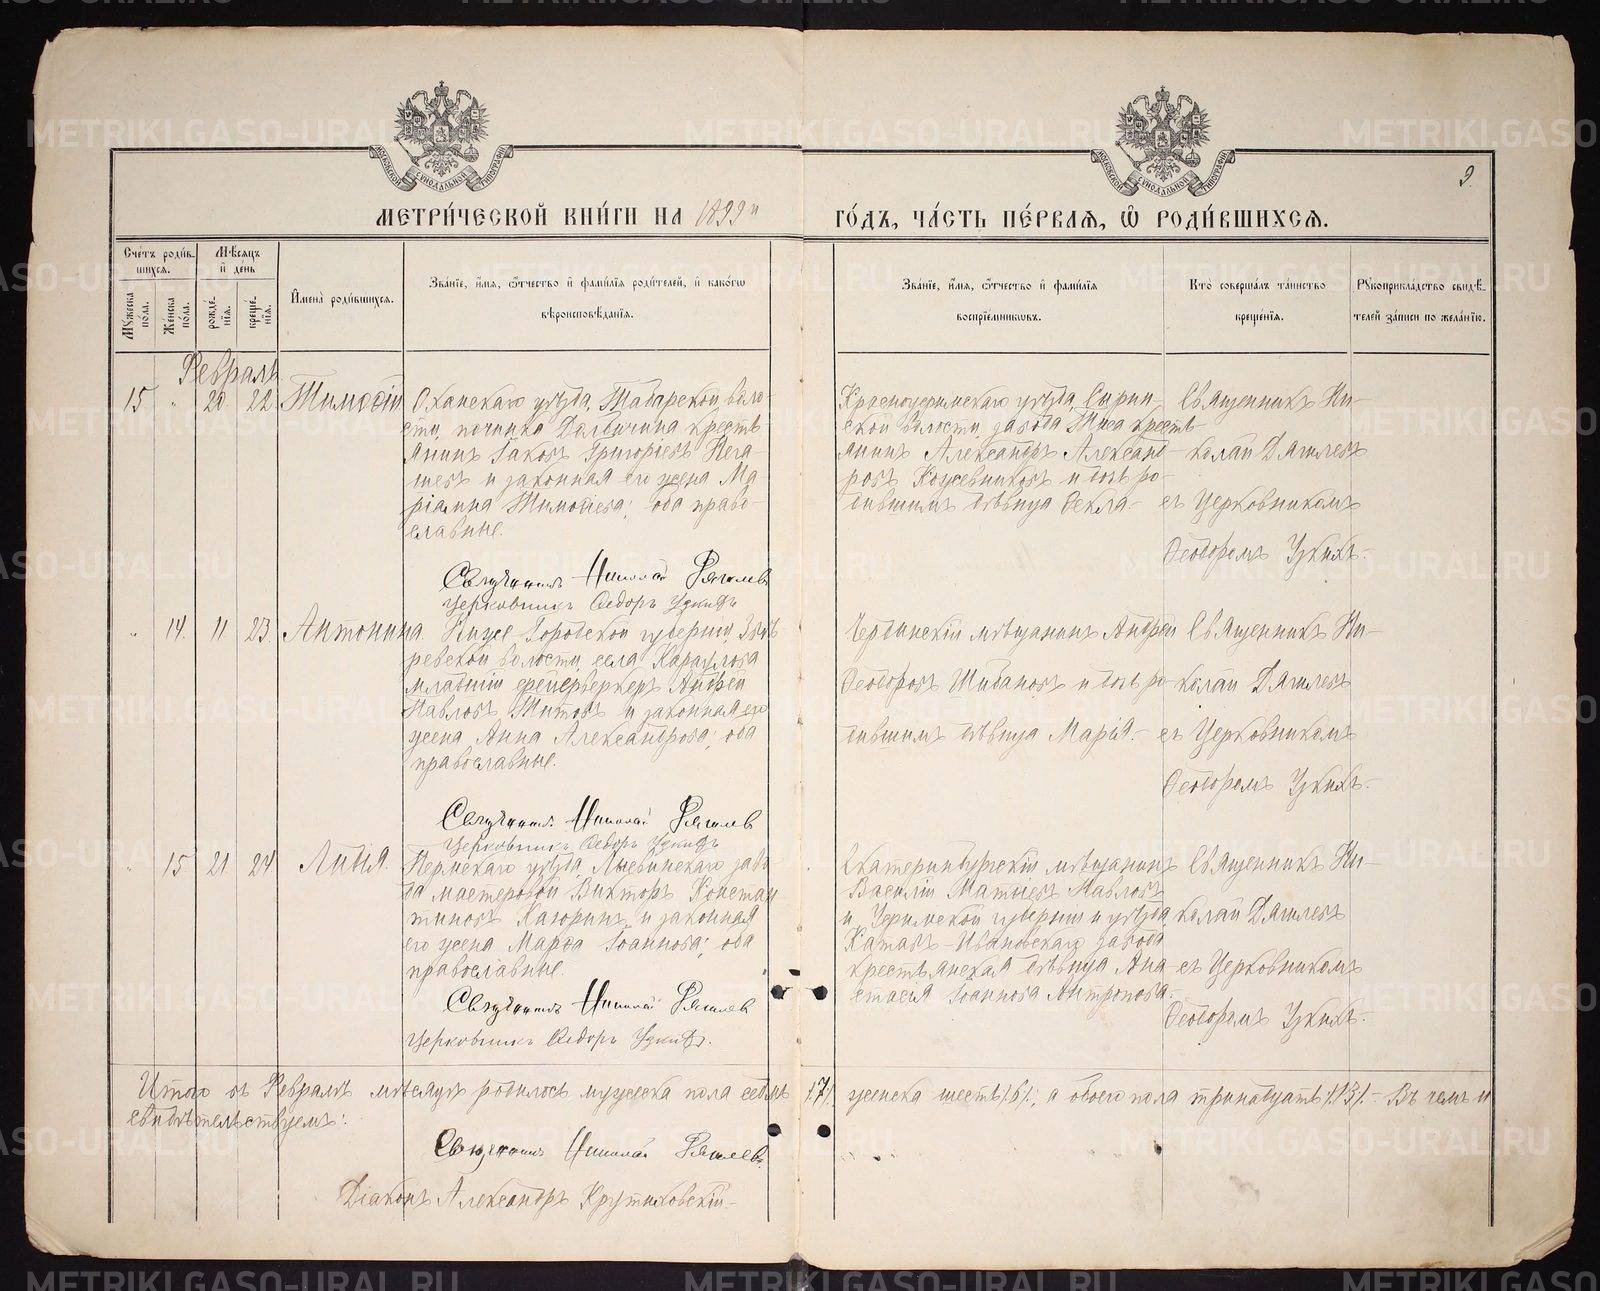 МЕТРИ́ЧЕСКОЙ КНИ́ГИ НА 1899й ГО́ДЪ, ЧА́СТЬ ПЕ́РВАѦ, Ѽ РОДИ́ВШИХСѦ.
9.
Сче́тъ роди́в-
шихсѧ.
Мѣсѧцъ
и҆ де́нь
И҆мена̀ роди́вшихсѧ.
Зва́нїе, и҆́мѧ, ѻ҆́тчество и҆ фами́лїѧ роди́телей, и҆ како́гѡ
вѣроисповѣ́данїѧ.
Мꙋ́жеска по́ла.
Же́нска по́ла.
рожде́нїѧ.
креще́нїѧ.
Зва́нїе, и҆́мѧ, ѻ҆́тчество и҆ фами́лїѧ
воспрїе́мникѡвъ.
Кто̀ соверша́лъ та́инство
креще́нїѧ.
Рꙋкоприкла́дство свидѣ́-
телей за́писи по жела́нїю.
Февраль
15. " 20. 22. Тимоѳій
Оханскаго уѣзда, Таборской воло-
сти, починка
крестѣ-
янинъ Іаковъ Григоріевъ
и законная его жена Ма-
ріамна Тимоѳіева; оба право-
славные.
Священникъ Николай Дягилевъ
Церковникъ Ѳедоръ Удкихъ
Красноуфимскаго уѣзда, Сырин-
ской волости, завода Тиса кресть-
янинъ Александръ Александ-
ровъ Кожевниковъ и дочь ро-
дившимъ дѣвица Ѳекла.-
Священникъ Ни-
колай Дягилевъ
съ Церковникомъ
Ѳеодоромъ
" 14. 11. 23. Антонина.
Ниже-Городской губерніи,
волости, села Караулова
младшій фейерверкеръ Андрей
Павловъ Титовъ и законная его
жена Анна Александрова; оба
православные.
Священникъ Николай Дягилевъ
Церковникъ Ѳедоръ Удкихъ
Чердынскій мѣщанинъ Андрей
Ѳеодоровъ Шибановъ и дочь ро-
дившимъ дѣвица Марія.-
Священникъ Ни-
колай Дягилевъ
съ Церковникомъ
Ѳеодоромъ
" 15 21 24 Лидія.
Пермскаго уѣзда, Лысвинскаго заво-
да мастеровой Викторъ Констан-
тиновъ и законная
его жена Марѳа Іоаннова; оба
православные.
Священникъ Николай Дягилевъ
Церковникъ Ѳедоръ Удкихъ.
Екатеринбургскій мѣщанинъ
Василій Матѳіевъ Павловъ
и Уфимской губерніи и уѣзда,
Катавъ-Ивановскаго завода
крестьянская дѣвица Ана-
стасія Іоаннова Антропова.-
Священникъ Ни-
колай Дягилевъ
съ Церковникомъ
Ѳеодоромъ
Итого въ Февралѣ мѣсяцѣ родилось мужеска пола седмь /7/, женска шесть /6/, а обоего пола тринадцать /13/.- Въ чемъ и
свидѣтельствуемъ:
Священникъ Николай Дягилевъ.
Діаконъ Александръ Крутиховскій.-
METRIKI.GASO-URAL.RU